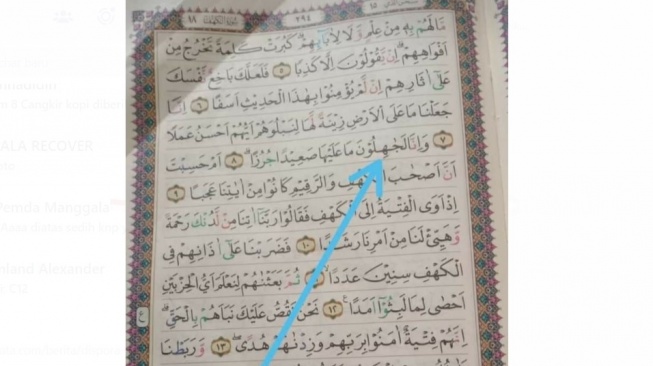 ٢٩٤
مَا لَهُمْ بِهٖ مِنْ عِلْمٍ وَّلَا لِاٰبَاۤىِٕهِمْۗ كَبُرَتْ كَلِمَةً تَخْرُجُ مِنْ
اَفْوَاهِهِمْۗ اِنْ يَّقُوْلُوْنَ اِلَّا كَذِبًا ٥ فَلَعَلَّكَ بَاخِعٌ نَّفْسَكَ
عَلٰٓى اٰثَارِهِمْ اِنْ لَّمْ يُؤْمِنُوْا بِهٰذَا الْحَدِيْثِ اَسَفًا ٦ اِنَّا
جَعَلْنَا مَا عَلَى الْاَرْضِ زِيْنَةً لَّهَا لِنَبْلُوَهُمْ اَيُّهُمْ اَحْسَنُ عَمَلًا
٧ وَاِنَّا لَجٰهِلُوْنَ مَا عَلَيْهَا صَعِيْدًا جُرُزًاۗ ٨ اَمْ حَسِبْتَ
اَنَّ اَصْحٰبَ الْكَهْفِ وَالرَّقِيْمِ كَانُوْا مِنْ اٰيٰتِنَا عَجَبًا ٩
اِذْ اَوَى الْفِتْيَةُ اِلَى الْكَهْفِ فَقَالُوْا رَبَّنَآ اٰتِنَا مِنْ لَّدُنْكَ رَحْمَةً
وَّهَيِّئْ لَنَا مِنْ اَمْرِنَا رَشَدًا ١٠ فَضَرَبْنَا عَلٰٓى اٰذَانِهِمْ فِى
الْكَهْفِ سِنِيْنَ عَدَدًاۙ ثُمَّ بَعَثْنٰهُمْ لِنَعْلَمَ اَيُّ الْحِزْبَيْنِ
اَحْصٰى لِمَا لَبِثُوْٓا اَمَدًا ١٢ نَحْنُ نَقُصُّ عَلَيْكَ نَبَاَهُمْ بِالْحَقِّۗ
اِنَّهُمْ فِتْيَةٌ اٰمَنُوْا بِرَبِّهِمْ وَزِدْنٰهُمْ هُدًىۖ ١٣ وَّرَبَطْنَا
ALA RECOVER
Manggala
Alexander